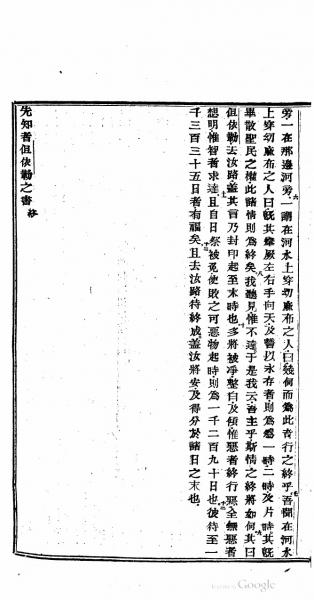 旁一在那邊河旁一謂在河水上穿幼蔴布之人曰幾何而爲此奇行之終乎吾聞在河水
上穿幼蔴布之人曰旣其舉厥左右手向天及誓以永存者則爲爲一時二時及片時其旣
畢散聖民之權此諸情則爲終矣我聽見惟不達于是我云吾主乎斯情之終將如何其曰
但依勒去汝路蓋其言乃封印起至末時也多將被凈整白及傾惟惡者終行惡全無惡者
想明惟智者求達且自日祭被免使敗之可惡物起時則爲一千二百九十日也彼待至一
千三百三十五日者有福矣且去汝路待終成蓋汝將安及得分於諸日之末也
先知者但依勒之書終
Google